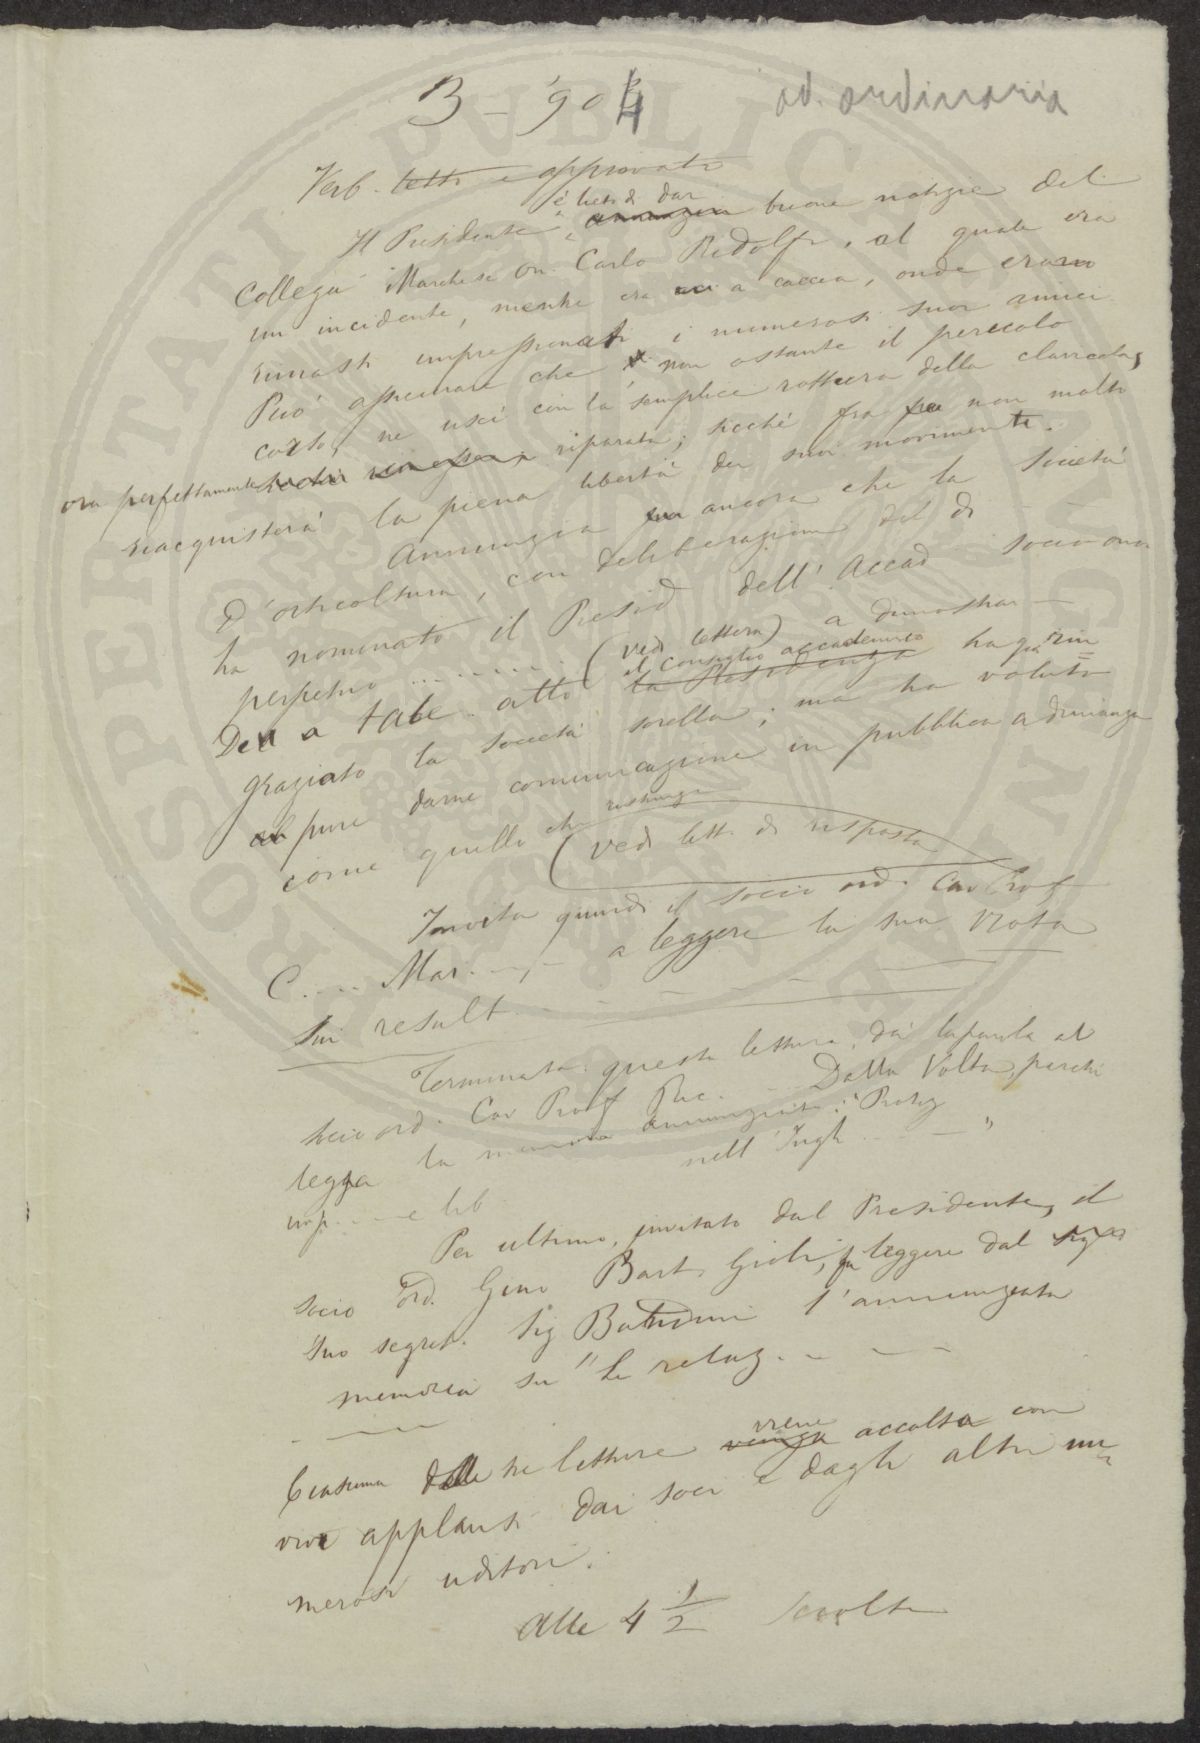 3 - 904 ad. ordinaria
Verb. letto e approvato
è lieto di dar
Il Presidente annunzia buone notizie del
Collega Marchese On. Carlo Ridolfi, al quale era
un incidente, mentre era a caccia, onde erano
rimasti impressionati i numerosi suoi amici
Può assicurare che non ostante il pericolo
corso, ne uscì con la semplice rottura della clavicola,
ora perfettamente riparata; sicché fra non molto
riacquisterà la piena libertà dei suoi movimenti.
Annunzia ancora che la Società
d'orticoltura, con deliberazione del dì
ha nominato il Presid dell'Accad socio onor
perpetuo ....... (vedi lettera) a dimostrar
il Consiglio accademico
De a tale atto la Presidenza ha già rin=
graziato la società sorella; ma ha voluto
pure darne comunicazione in pubblica adunanza
come quello che
(vedi lett. di risposta
Invita quindi il socio ord. Cav Prof
C.... Mar. - a leggere la sua Nota
Sui result
Terminata questa lettura, dà la parola al
socio ord. Cav Prof Ric. Dalla Volta, perché
legga la memoria annunziata: "Protez
imp.... e lib nell'Ingh ...... "
Per ultimo, invitato dal Presidente, il
socio ord. Gino Bart. Gioli, fa leggere dal
suo segret. Sig l'annunziata
memoria su "le relaz. - - -
Ciascuna delle tre letture viene accolta con
vivi applausi dai soci e dagli altri nu=
merosi uditori.
Alle 4 1/2 sciolta